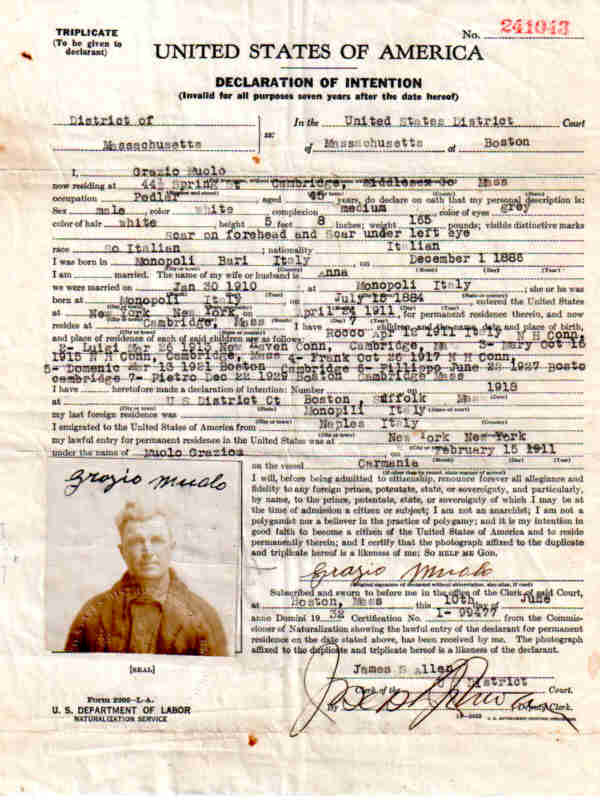 TRIPLICATE
(To be given to
declarant)
No. 241043
UNITED STATES OF AMERICA
DECLARATION OF INTENTION
(Invalid for all purposes seven years after the date hereof)
District of
Massachusetts
ss:
In the United States District Court
of Massachusetts at Boston
I, Grazio Muolo
now residing at 44½ Spring St Cambridge, Middlesex Co Mass
occupation Pedlar, aged 45 years, do declare on oath that my personal description is:
Sex male, color white, complexion medium, color of eyes grey
color of hair white, height 5 feet 8 inches; weight 165 pounds; visible distinctive marks
Scar on forehead and Scar under left eye
race So Italian; nationality Italian
I was born in Monopoli Bari Italy, on December 1 1886
I am married. The name of my wife or husband is Anna
we were married on Jan 30 1910, at Monopoli Italy; she or he was
born at Monopoli Italy, on July 15 1884, entered the United States
at New York New York, on April 24 1911, for permanent residence therein, and now
resides at Cambridge, Mass I have 7 children, and the name, date and place of birth,
and place of residence of each of said children are as follows: Rocco Apr 18 1911 Italy N H Conn
2- Luigi Haven Conn, Cambridge, Ma 3- Mary Oct 15
1915 N H Conn, Cambridge, Mass 4- Frank Oct 26 1917 N H Conn,
5- Domenic Mar 13 1921 Boston Cambridge 6- Fillippo June 28 1927 Bosto
Cambridge 7- Pietro Dec 22 1929 Boston Cambridge Mass
I have heretofore made a declaration of intention: Number, on 1918
at U S District Ct Boston, Suffolk Mass
my last foreign residence was Monopili Italy
I emigrated to the United States of America from Naples Italy
my lawful entry for permanent residence in the United States was at New York New York
under the name of Muolo Grazios, on February 15 1911
on the vessel Carmania
I will, before being admitted to citizenship, renounce forever all allegiance and
fidelity to any foreign prince, potentate, state, or sovereignty, and particularly,
by name, to the prince, potentate, state, or sovereignty of which I may be at
the time of admission a citizen or subject; I am not an anarchist; I am not a
polygamist nor a believer in the practice of polygamy; and it is my intention in
good faith to become a citizen of the United States of America and to reside
permanently therein; and I certify that the photograph affixed to the duplicate
and triplicate hereof is a likeness of me; SO HELP ME GOD.
Grazio Muolo
Grazio Muolo
(Original signature of declarant without abbreviation, also alias, if used)
Subscribed and sworn to before me in the office of the Clerk of said Court,
at Boston, Mass this 10th day of June
anno Domini 1932 Certification No. 1- 99477 from the Commis-
sioner of Naturalization showing the lawful entry of the declarant for permanent
residence on the date stated above, has been received by me. The photograph
affixed to the duplicate and triplicate hereof is a likeness of the declarant.
[SEAL]
James S Allen
Clerk of the U S District Court.
By Deputy Clerk.
Form 2202-L-A.
U. S. DEPARTMENT OF LABOR
NATURALIZATION SERVICE